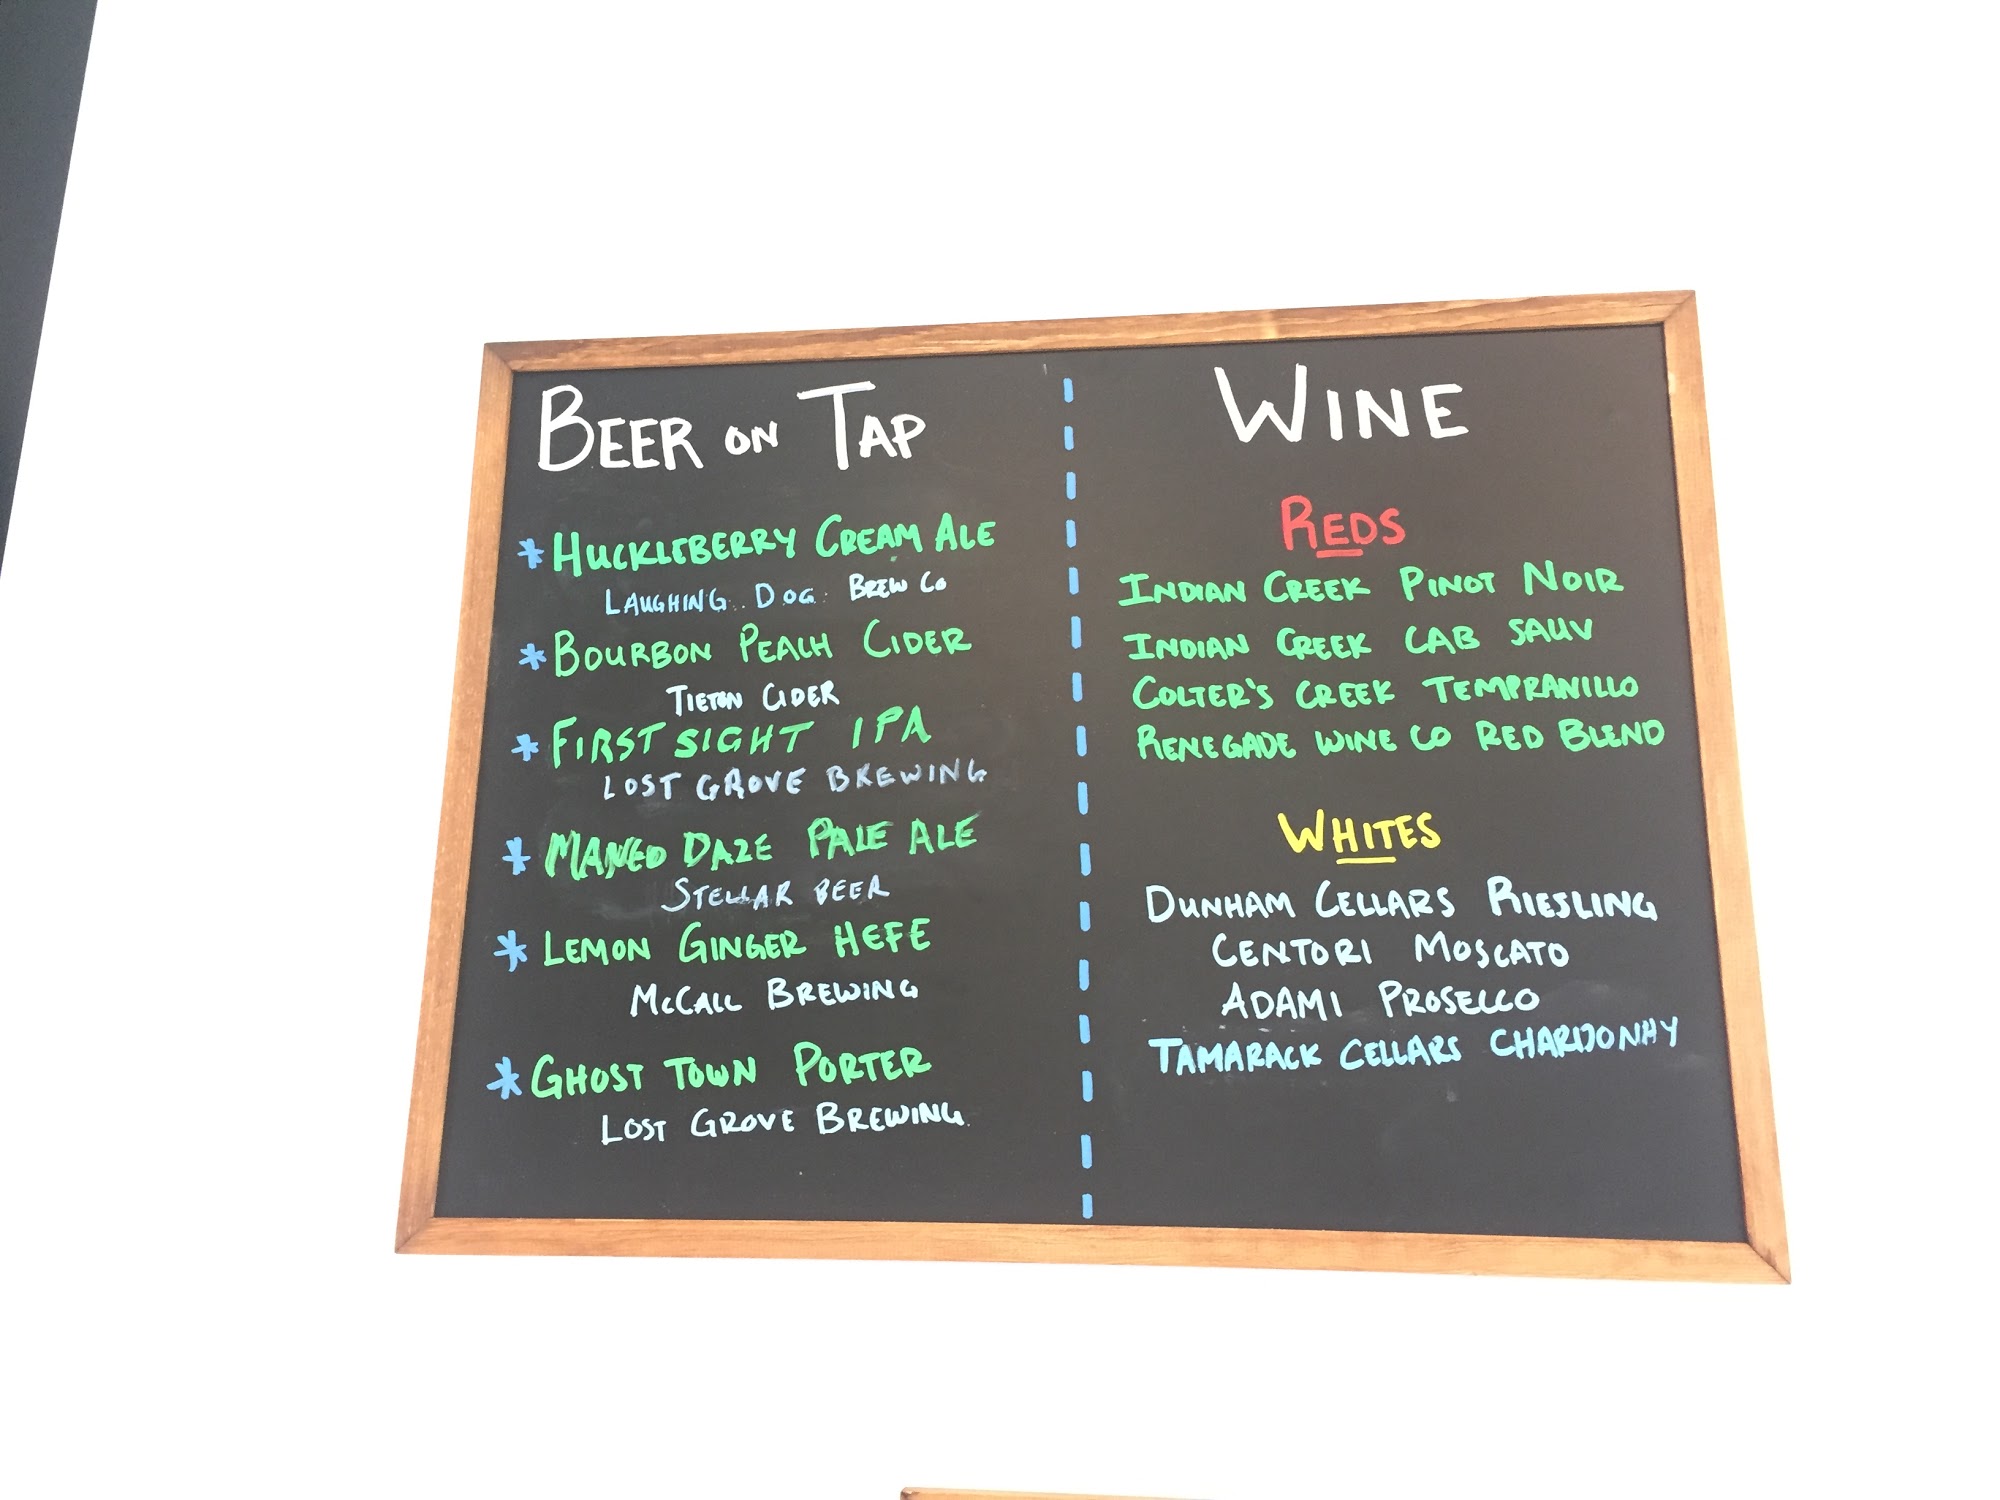 BEER ON TAP
* HUCKLEBERRY CREAM ALE
LAUGHING DOG BREW CO
* BOURBON PEACH CIDER
TIETON CIDER
* FIRST SIGHT IPA
LOST GROVE BREWING
* MANGO DAZE PALE ALE
STELLAR BEER
* LEMON GINGER HEFE
McCALL BREWING
* GHOST TOWN PORTER
LOST GROVE BREWING
WINE
REDS
INDIAN CREEK PINOT NOIR
INDIAN CREEK CAB SAUV
COLTER'S CREEK TEMPRANILLO
RENEGADE WINE CO RED BLEND
WHITES
DUNHAM CELLARS RIESLING
CENTORI MOSCATO
ADAMI PROSECCO
TAMARACK CELLARS CHARDONNAY